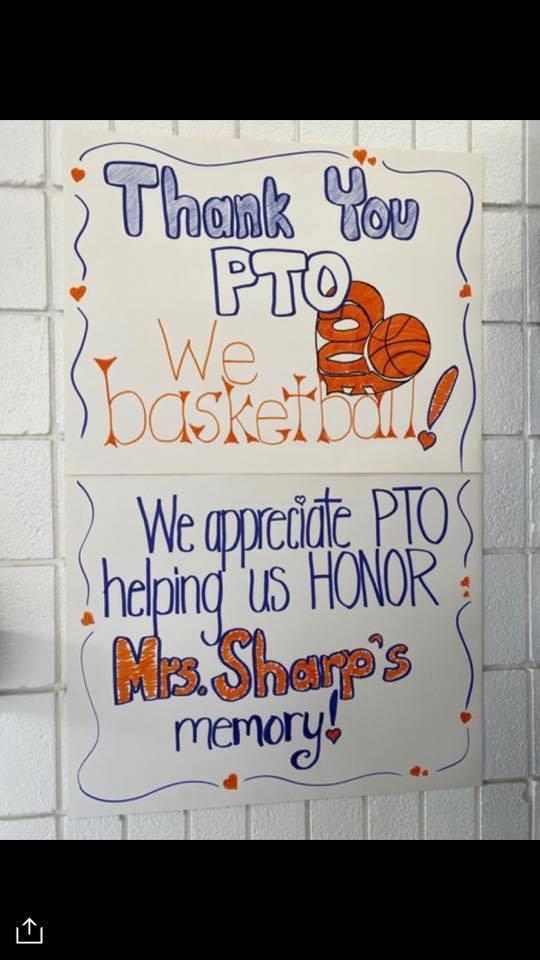 Thank You
PTO
We LOVE
basketball!
We appreciate PTO
helping us HONOR
Mrs. Sharp's
memory!